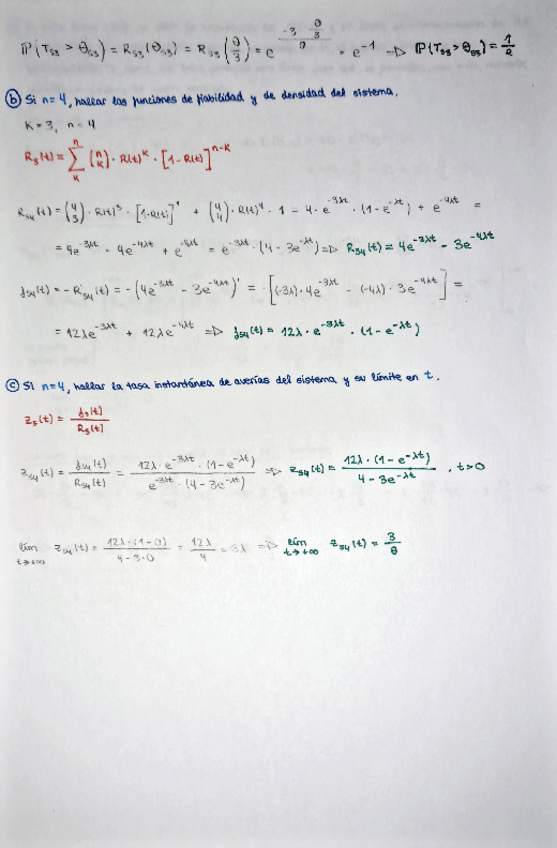 ℙ(T_S3 > θ_S3) = R_S3(θ_S3) = R_S3(θ/3) = e^(-3/θ · θ/3) = e^-1 ⇒ ℙ(T_S3 > θ_S3) = 1/e
b) Si n=4, hallar las funciones de fiabilidad y de densidad del sistema.
K=3, n=4
R_S(t) = Σ_K^n (n K) · R(t)^K · [1-R(t)]^(n-K)
R_S4(t) = (4 3) · R(t)^3 · [1-R(t)]^1 + (4 4) · R(t)^4 · 1 = 4 · e^(-3λt) · (1-e^(-λt)) + e^(-4λt) =
= 4e^(-3λt) - 4e^(-4λt) + e^(-4λt) = e^(-3λt) · (4-3e^(-λt)) ⇒ R_S4(t) = 4e^(-3λt) - 3e^(-4λt)
f_S4(t) = -R'_S4(t) = -(4e^(-3λt) - 3e^(-4λt))' = -[(-3λ)·4e^(-3λt) - (-4λ)·3e^(-4λt)] =
= 12λe^(-3λt) + 12λe^(-4λt) ⇒ f_S4(t) = 12λ · e^(-3λt) · (1-e^(-λt))
c) Si n=4, hallar la tasa instantánea de averías del sistema y su límite en t.
z_S(t) = f_S(t)/R_S(t)
z_S4(t) = f_S4(t)/R_S4(t) = 12λ · e^(-3λt) · (1-e^(-λt)) / e^(-3λt) · (4-3e^(-λt)) ⇒ z_S4(t) = 12λ · (1-e^(-λt)) / 4-3e^(-λt), t>0
lím t→+∞ z_S4(t) = 12λ·(1-0) / 4-3·0 = 12λ/4 = 3λ ⇒ lím t→+∞ z_S4(t) = 3/θ